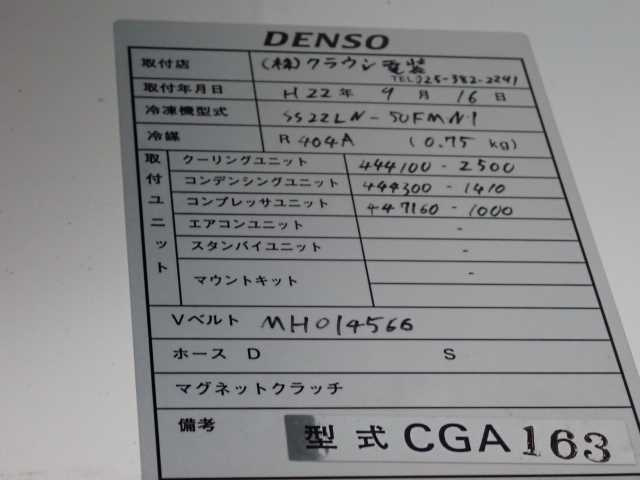 DENSO
取付店 (株)クラウン電装
TEL025-382-2241
取付年月日 H22年 9月 16日
冷凍機型式 SS22LN-50FMN1
冷媒 R 404A (0.75 kg)
取付ユニット
クーリングユニット 444100-2500
コンデンシングユニット 444300-1410
コンプレッサユニット 447160-1000
エアコンユニット -
スタンバイユニット -
マウントキット -
Vベルト MH014566
ホース D S
マグネットクラッチ
備考 型式 CGA163